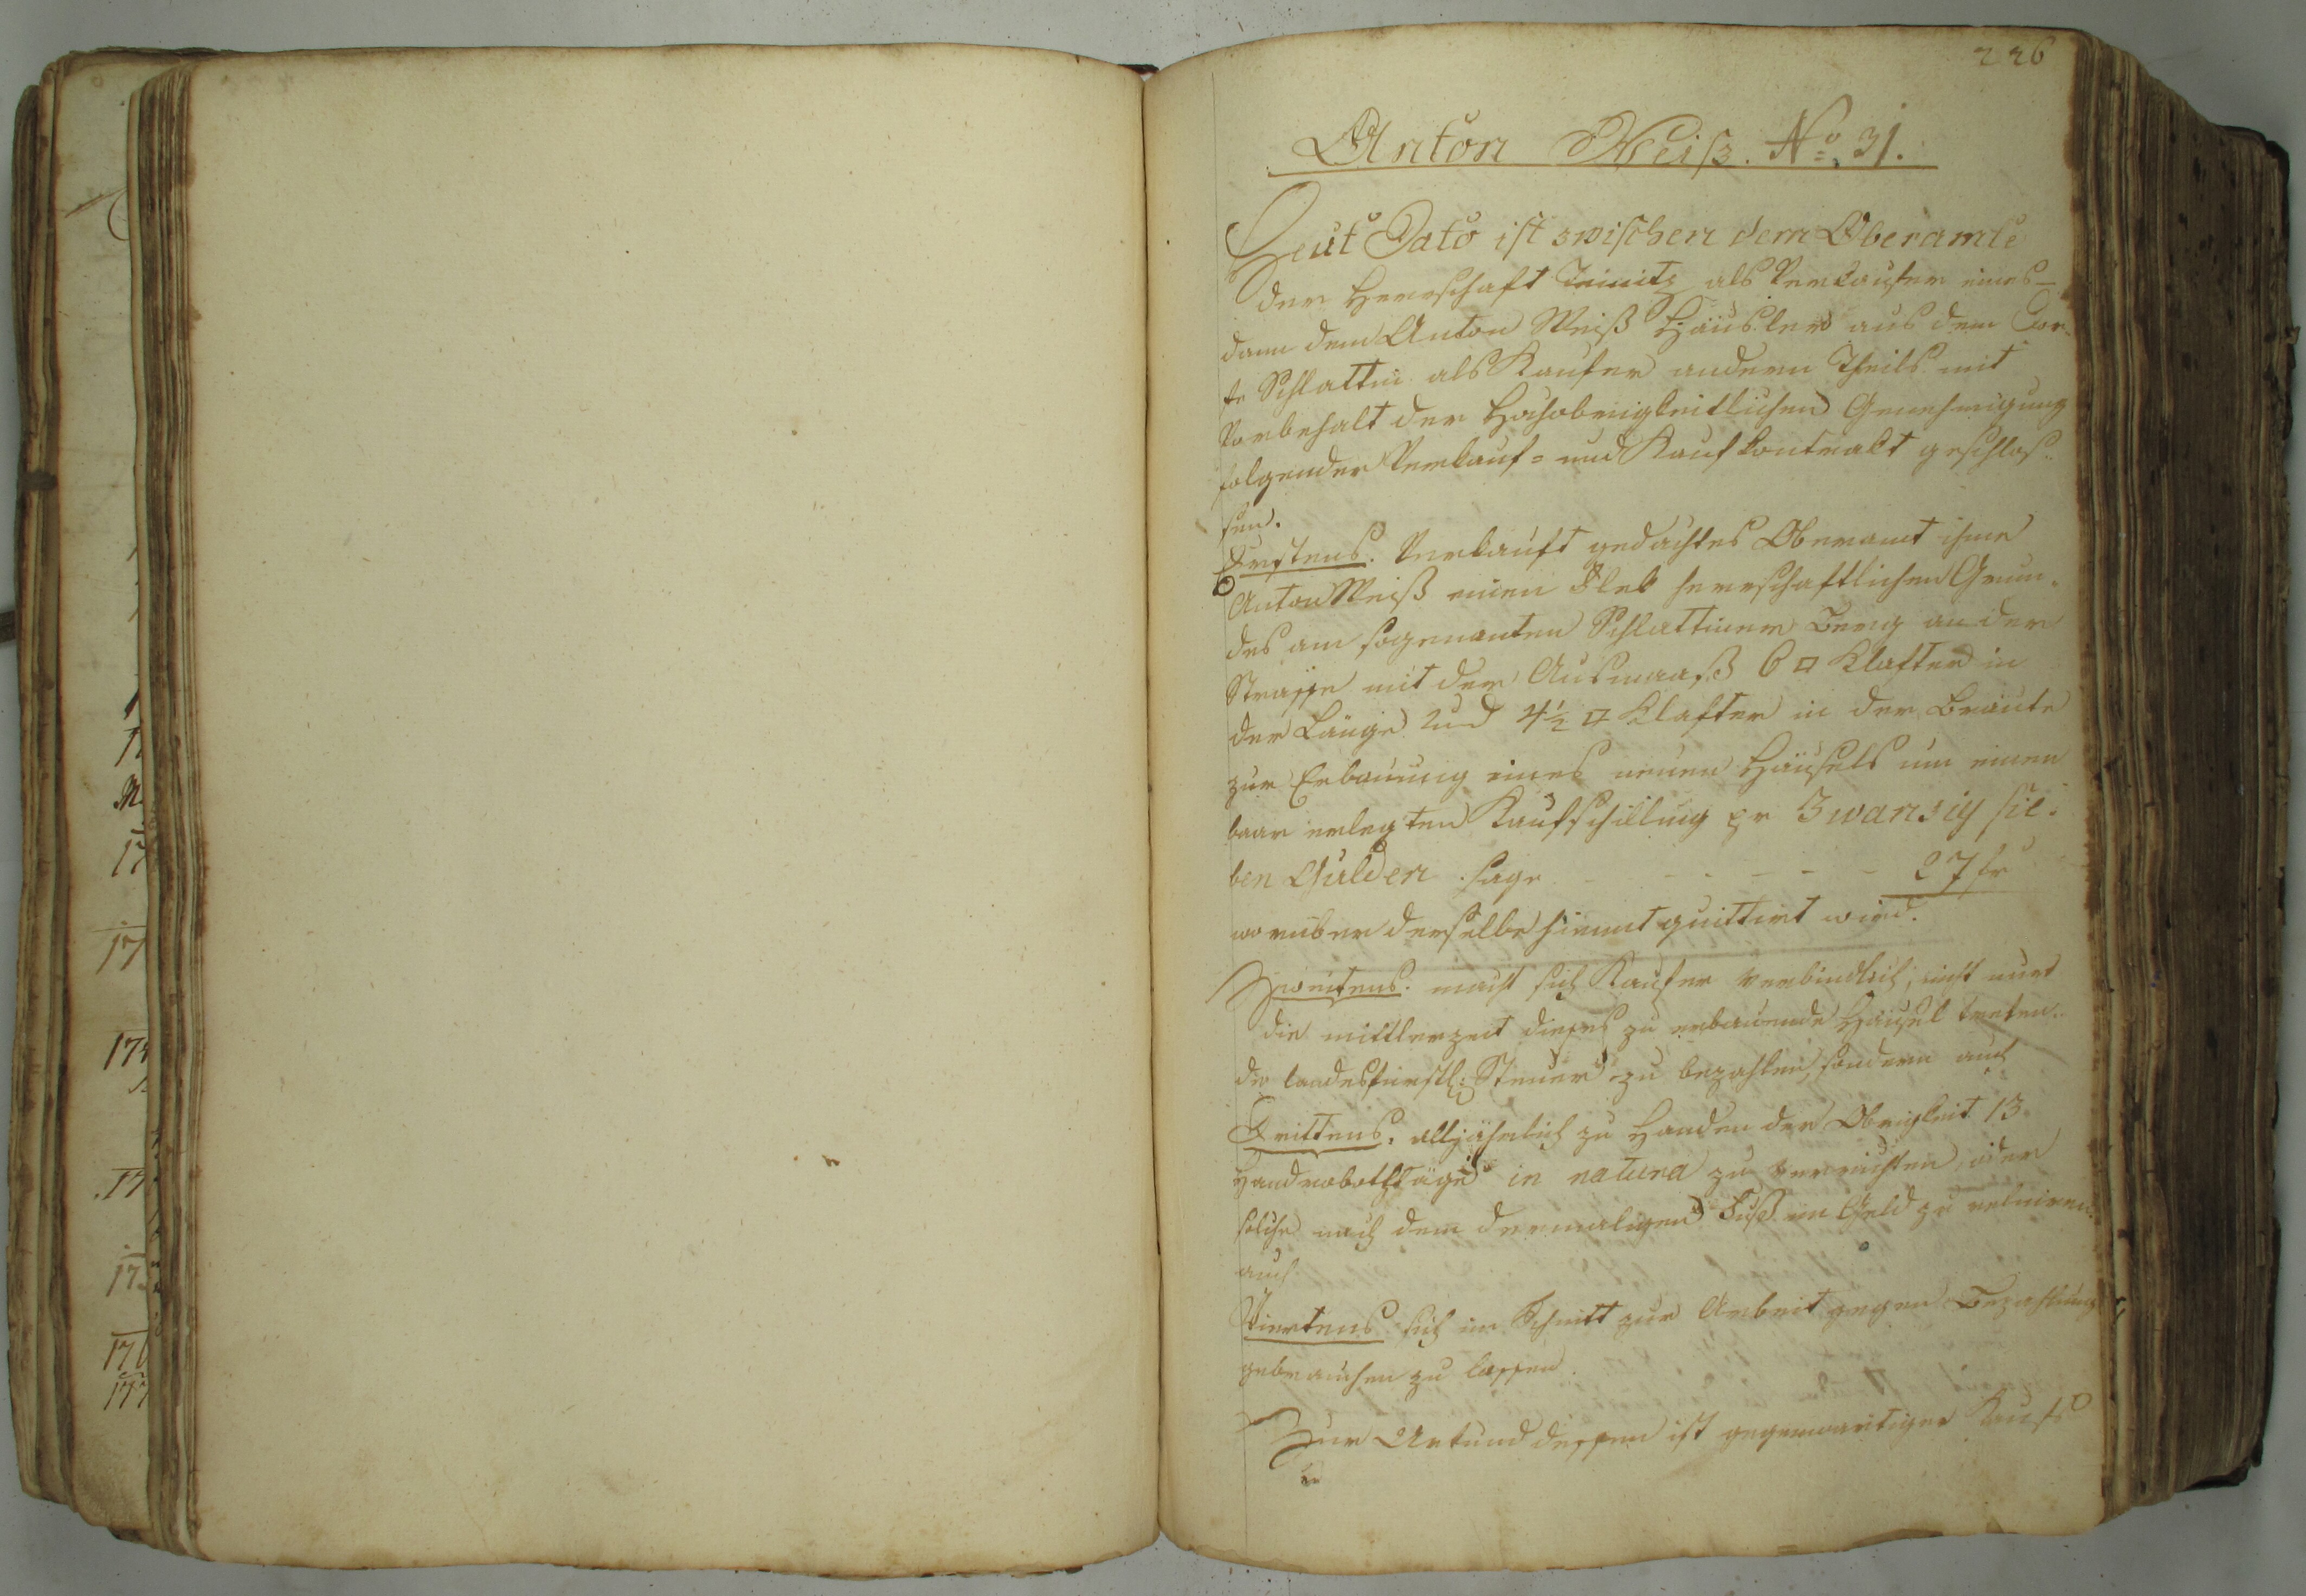 226
Anton Weiß. No. 31.
Heut Dato ist zwischen dem Oberamte
der Herrschaft Teinitz als Verkaufer eines
dann dem Anton Weiß Häusler aus dem Dor-
fe Schlattin als Kaufer andern Theils mit
Vorbehalt der Hochobrigkeitlichen Genehmigung
folgender Verkauf= und Kaufkontrakt geschlos-
sen.
Erstens. Verkauft gedachtes Oberamt ihme
Anton Weiß einen Flek herrschaftlichen Grun-
des am sogenanten Schlattiner Berg an der
Strasse mit der Ausmaaß 6 □ Klafter in
der Länge und 4½ □ Klafter in der Breite
zur Erbauung eines neuen Häusels um einen
baar erlegten Kaufschilling pr Zwanzig sie-
ben Gulden sage - - - - - 27 fr
worüber derselbe hiemit quittirt wird.
Zweitens. macht sich Kaufer verbindlich, nicht nur
die mittlerzeit dieses zu erbauende Häusel treten-
de landesfürstl: Steuer zu bezahlen, sondern auch
Drittens. alljährlich zu Handen der Obrigkeit 13
Handrobothtäge in natura zu verrichten, oder
solche nach dem dermaligen Fuß im Geld zu reluiren
auch
Viertens sich im Schnitt zur Arbeit gegen Bezahlung
gebrauchen zu lassen.
Zur Urkund dessen ist gegenwärtiger Kauf=
17
17
17
17
176
177